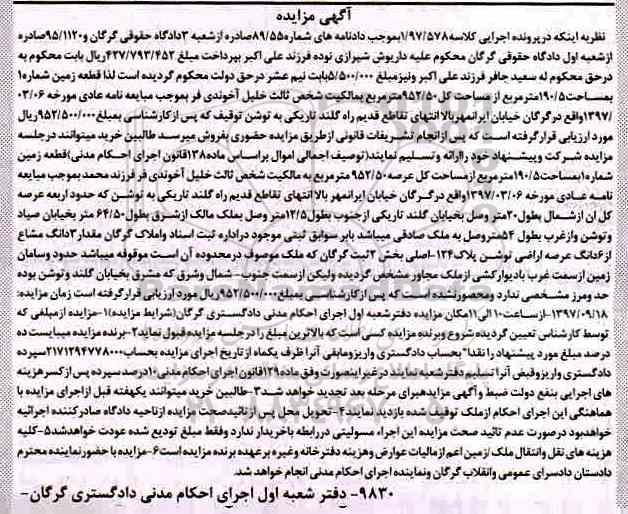 آگهی مزایده
نظربه اینکه درپرونده اجرایی کلاسه۱/۹۷/۵۷۸بموجب دادنامه های شماره۸۹/۵۵صادره ازشعبه ۳دادگاه حقوقی گرگان و۹۵/۱۱۲۰صادره
ازشعبه اول دادگاه حقوقی گرگان محکوم علیه داریوش شیرازی نوده فرزند علی اکبر بپرداخت مبلغ ۴۲۷/۷۹۳/۴۵۳ریال بابت محکوم به
درحق محکوم له سعید جافر فرزند علی اکبر ونیزمبلغ ۵/۵۰۰/۰۰۰بابت نیم عشر درحق دولت محکوم گردیده است لذا قطعه زمین شماره۱
بمساحت۱۹۰/۵مترمربع از مساحت کل۹۵۲/۵۰مترمربع بمالکیت شخص ثالث خلیل آخوندی فر بموجب مبایعه نامه عادی مورخه ۰۳/۰۶
/۱۳۹۷واقع درگرگان خیابان ایرانمهربالاانتهای تقاطع قدیم راه گلند تاریکی به توشن توقیف که پس ازکارشناسی بمبلغ۹۵۲/۵۰۰/۰۰۰ریال
مورد ارزیابی قرارگرفته است که پس ازانجام تشریفات قانونی ازطریق مزایده حضوری بفروش میرسد طالبین خرید میتوانند درجلسه
مزایده شرکت وپیشنهاد خود راارائه وتسلیم نمایند(توصیف اجمالی اموال براساس ماده۱۳۸قانون اجرای احکام مدنی)قطعه زمین
شماره۱بمساحت۱۹۰/۵مترمربع ازمساحت کل عرصه ۹۵۲/۵۰مترمربع به مالکیت شخص ثالث خلیل آخوندی فر فرزند محمد بموجب مبایعه
نامه عادی مورخه ۱۳۹۷/۰۳/۰۶واقع درگرگان خیابان ایرانمهر بالا انتهای تقاطع قدیم راه گلند تاریکی به توشن که حدود اربعه عرصه
کل ان ازشمال بطول۲۰متر وصل بخیابان گلند تاریکی ازجنوب بطول۱۲/۵متر وصل بملک مالک ازشرق بطول۶۴/۵۰ متر بخیابان صیاد
وتوشن وازغرب بطول ۵۴متروصل به ملک صادقی میباشد بابر سوابق ثبتی موجود دراداره ثبت اسناد واملاک گرگان مقدار۳دانگ مشاع
از۶دانگ عرصه اراضی توشن پلاک۱۲۴-اصلی بخش ۲ثبت گرگان که ملک موصوف درمحدوده آن است موقوفه میباشد حدود وسامان
زمین ازسمت غرب بادیوارکشی ازملک مجاور مشخص گردیده ولیکن ازسمت جنوب- شمال وشرق که مشرق بخیابان گلند وتوشن بوده
حد ومرز مشخصی ندارد ومحصورنشده است که پس ازکارشناسی بمبلغ۹۵۲/۵۰۰/۰۰۰ریال مورد ارزیابی قرارگرفته است زمان مزایده:
۱۳۹۷/۰۹/۱۸-ازساعت۱۰الی۱۱مکان مزایده دفترشعبه اول اجرای احکام مدنی دادگستری گرگان(شرایط مزایده)۱-مزایده ازمبلغی که
توسط کارشناس تعیین گردیده شروع وبرنده مزایده کسی است که بالاترین مبلغ را درجلسه مزایده قبول نماید۲-برنده مزایده میبایست ده
درصد مبلغ مورد پیشنهاد را نقدا" بحساب دادگستری واریزومابقی آنرا ظرف یکماه از تاریخ اجرای مزایده بحساب۲۱۷۱۲۹۴۷۷۸۰۰۰سپرده
دادگستری واریزوقبض آنرا تسلیم دفترشعبه نمایند درغیراینصورت وفق ماده۱۲۹قانون اجرای احکام مدنی۱۰درصد سپرده پس ازکسرهزینه
های اجرایی بنفع دولت ضبط و آگهی مزایدهبرای مرحله بعد تجدید خواهد شد۳-طالبین خرید میتوانند یکهفته قبل ازاجرای مزایده با
هماهنگی این اجرای احکام ازملک توقیف شده بازدید نمایند۴- تحویل محل پس از تائیدصحت مزایده ازناحیه دادگاه صادرکننده اجرائیه
خواهدبود درصورت عدم تائید صحت مزایده این اجراء مسولیتی دررابطه باخریدار ندارد وفقط مبلغ تودیع شده عودت خواهدشد۵-کلیه
هزینه های نقل وانتقال ملک ازمین اعم ازمالیات عوارض وهزینه دفترخانه وغیره برعهده برنده مزایده است۶-مزایده با حضورنماینده محترم
دادستان دادسرای عمومی وانقلاب گرگان ونماینده اجرای احکام مدنی انجام خواهد شد.
۹۸۳۰- دفتر شعبه اول اجرای احکام مدنی دادگستری گرگان-